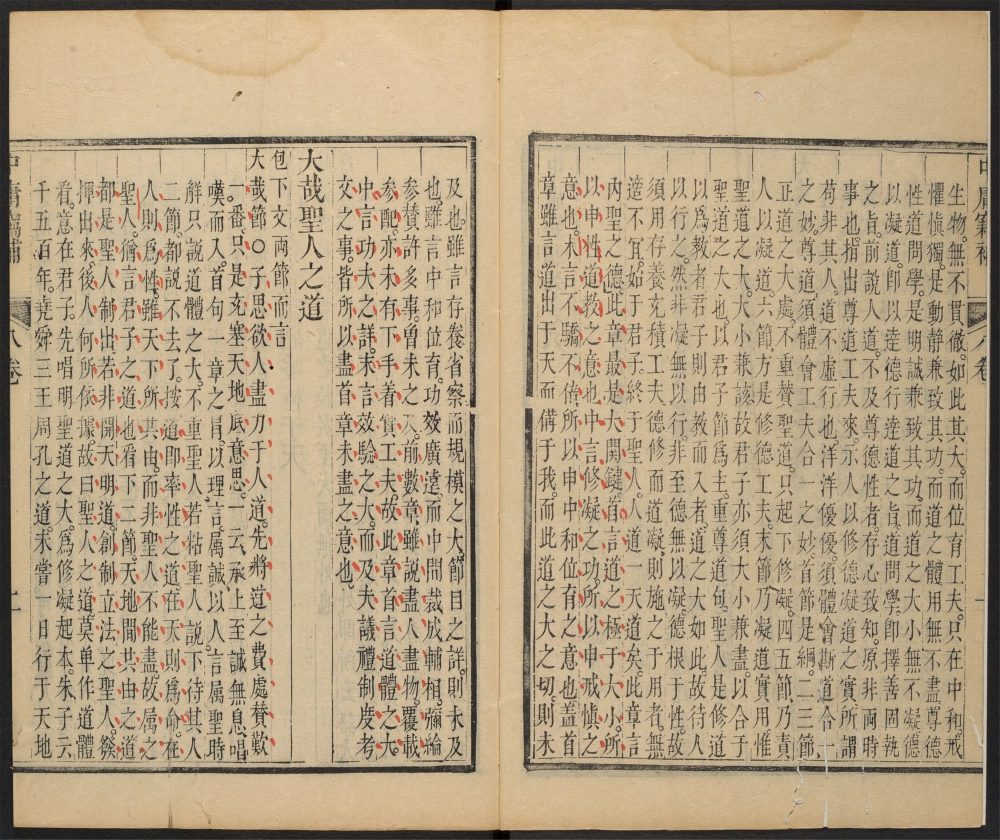 中庸纂補
八卷
生物無不貫徹如此其大而位育工夫只在中和戒
懼慎獨是動靜兼致其功而道之體用無不盡尊德
性道問學是明誠兼致其功而道之大小無不凝德
以凝道即以達德行達道之旨道問學即擇善固執
之旨前說人道不及尊德性者存心致知原非兩時
事也指出尊道工夫來示人以修德凝道之實所謂
苟非其人道不虛行也洋洋優優須體會斯道合一
之妙尊道須體會工夫合一之妙首節是綱二三節
正道之大處不重贊聖道只起下修凝四五節乃責
人以凝道六節方是修德工夫末節乃凝道實用惟
聖道之大大小兼該故君子亦須大小兼盡以合于
聖道之大也以君子節爲主重尊道句聖人是修道
以爲教者君子則由教而入者道之大如此故待人
以行之然非凝無以行非至德無以凝德根于性故
須用存養充積工夫德修而道凝則施之于用者無
適不宜始于君子終于聖人人道一天道矣此章言
內聖之德此章最是大開鍵首言道之極于大小所
以申性道教之意也中言修凝之功所以申戒慎之
意也末言不驕不倍所以申中和位育之意也蓋首
章雖言道出于天而備于我而此道之大之切則未
及也雖言存養省察而規模之大節目之詳則未及
也雖言中和位育功效廣遠而中間裁成輔相彌綸
參贊許多事曾未之入前數章雖說盡人盡物覆載
參配亦未有下手着實工夫故此章首言道體之大
中言功夫之詳末言效驗之大而及夫議禮制度考
文之事皆所以盡首章未盡之意也
大哉聖人之道
包下文兩節而言
大哉節〇子思欲人盡力于人道先將道之費處贊歎
一番只是充塞天地底意思一云承上至誠無息唱
嘆而入首句一章之冒以理言屬誠以人言屬聖時
觧只說道體之大不重聖人若粘聖人說下待其人
二節都說不去了按道即率性之道在天則爲命在
人則爲性雖天下所共由而非聖人不能盡故属之
聖人猶言君子之道也看下二節天地間共由之道
都是聖人制出若非開天明道創制立法之聖人發
揮出來後人何所依據故曰聖人之道莫单作道體
看意在君子先唱明聖道之大爲修凝起本朱子云
千五百年堯舜三王周孔之道未嘗一日行于天地
中庸纂補
八卷